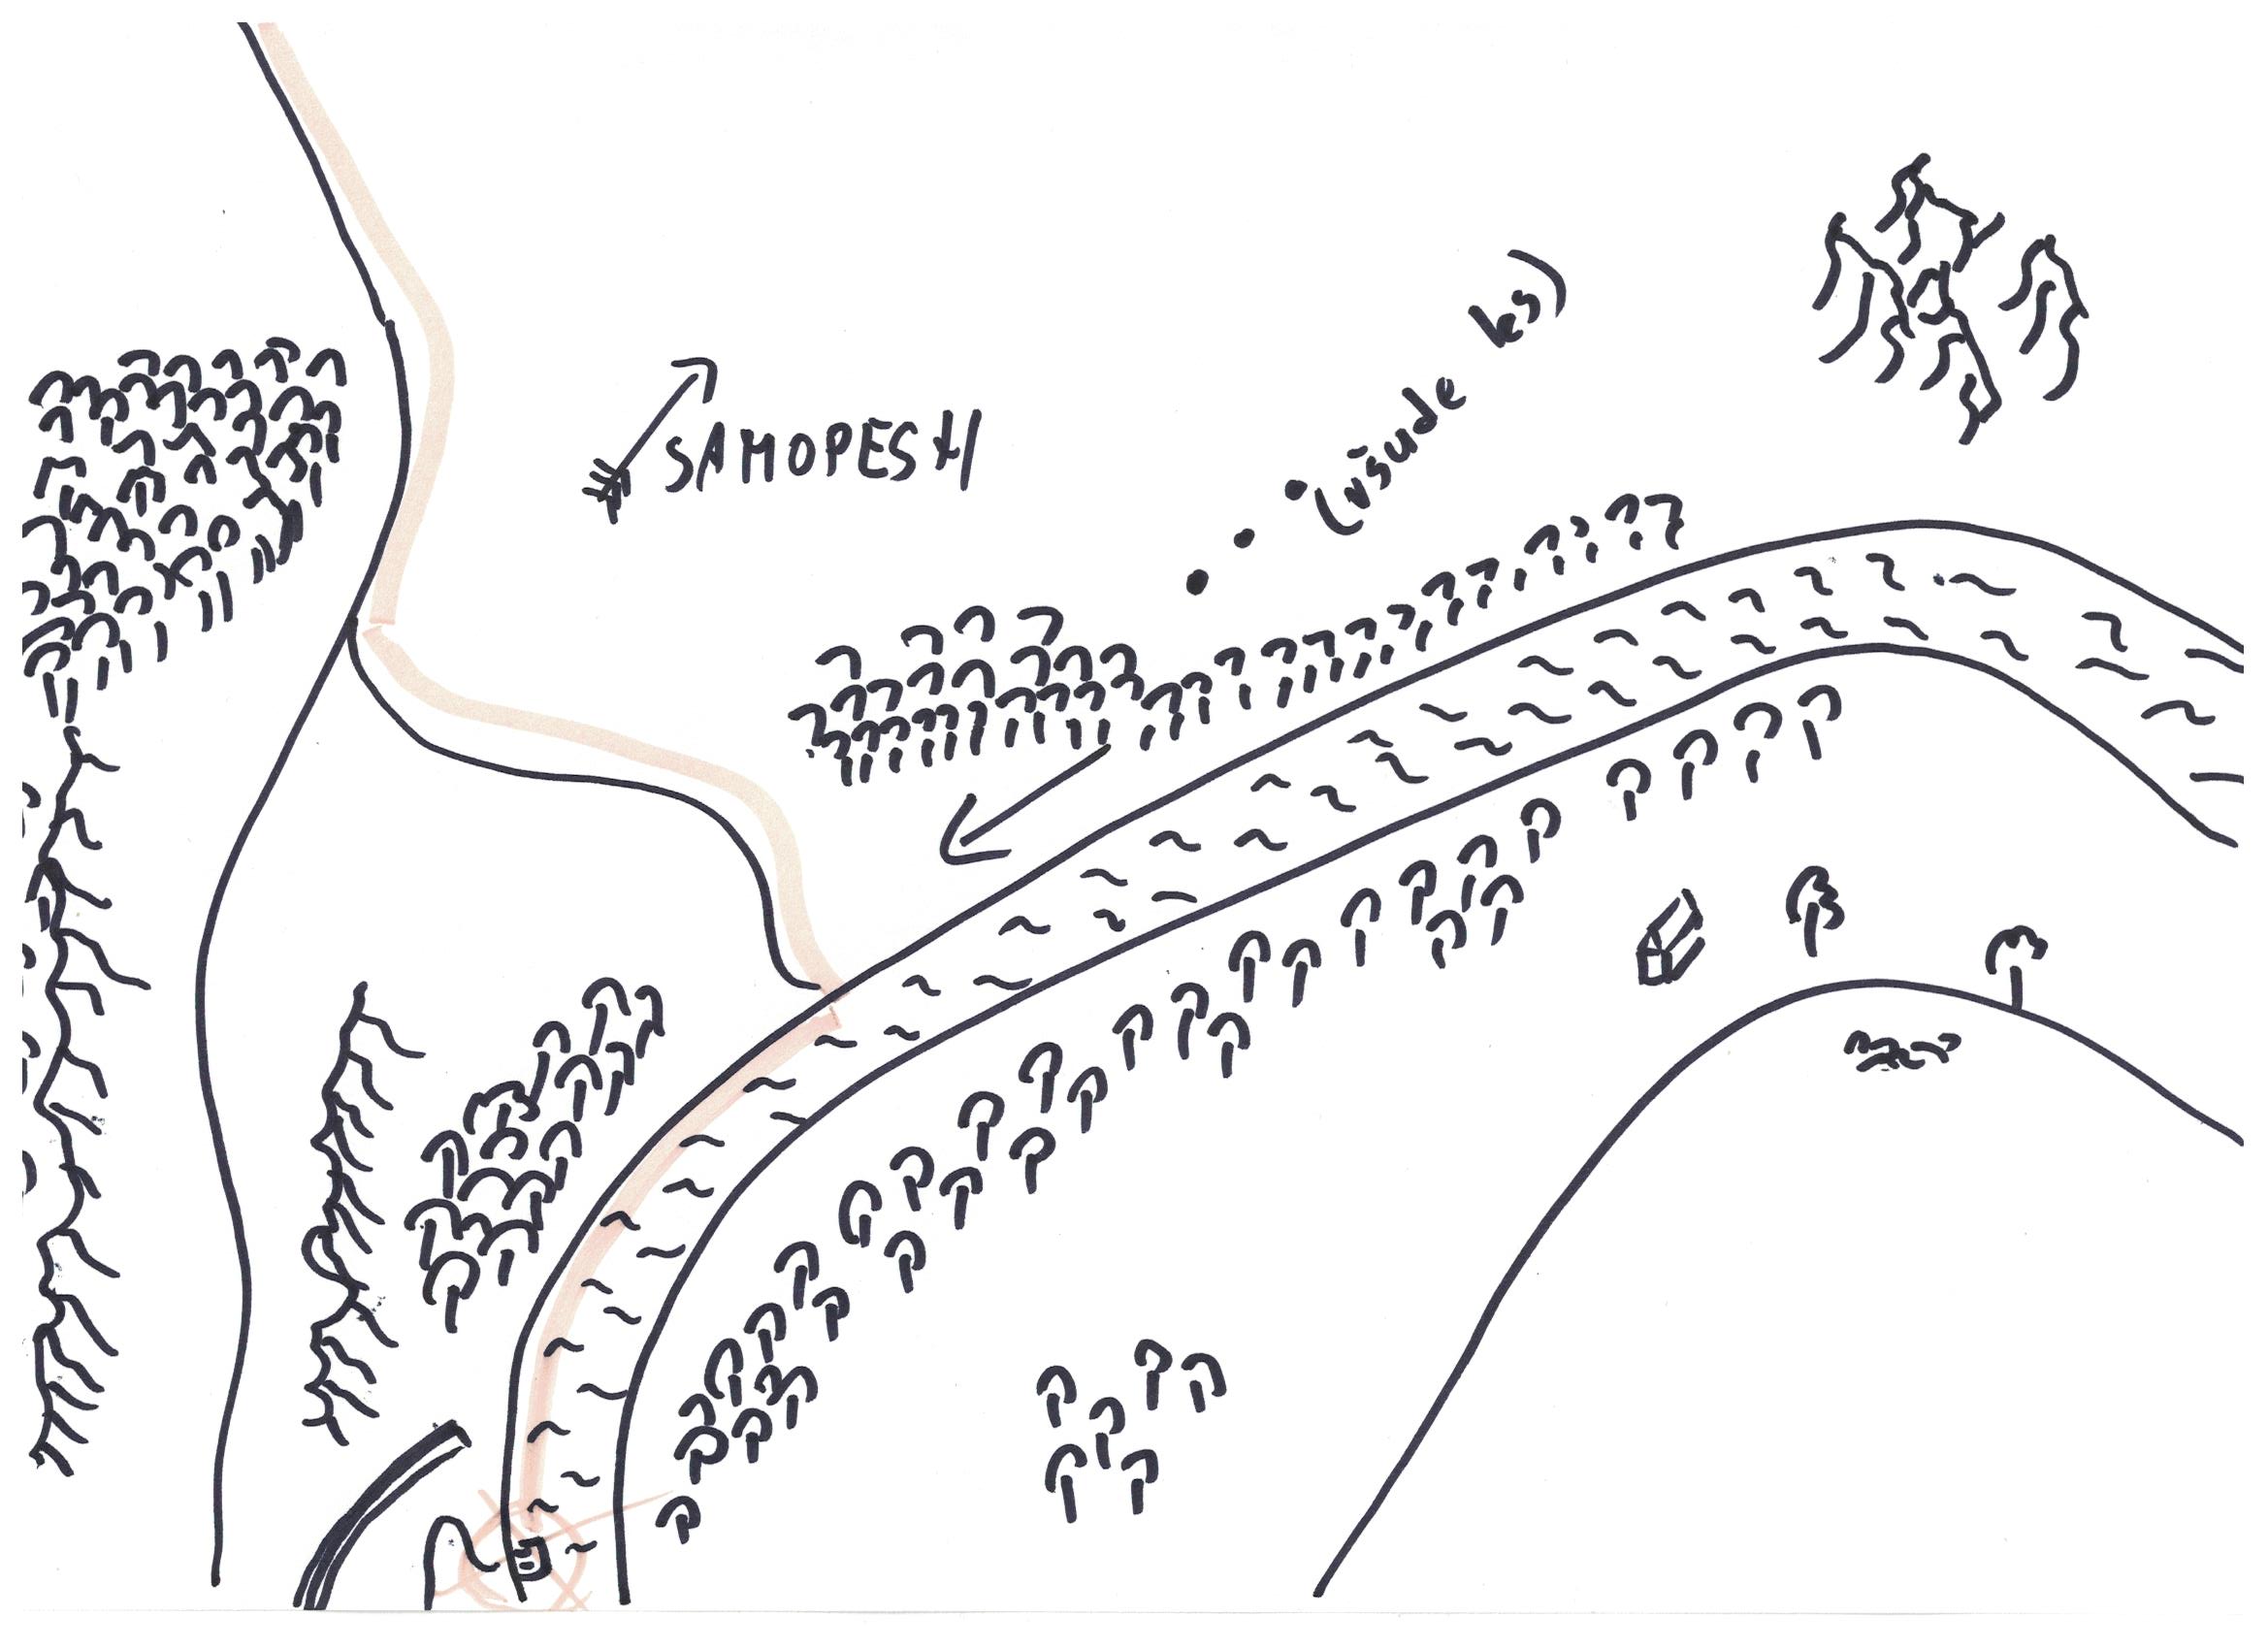 SAMOPESH
(všude ks)